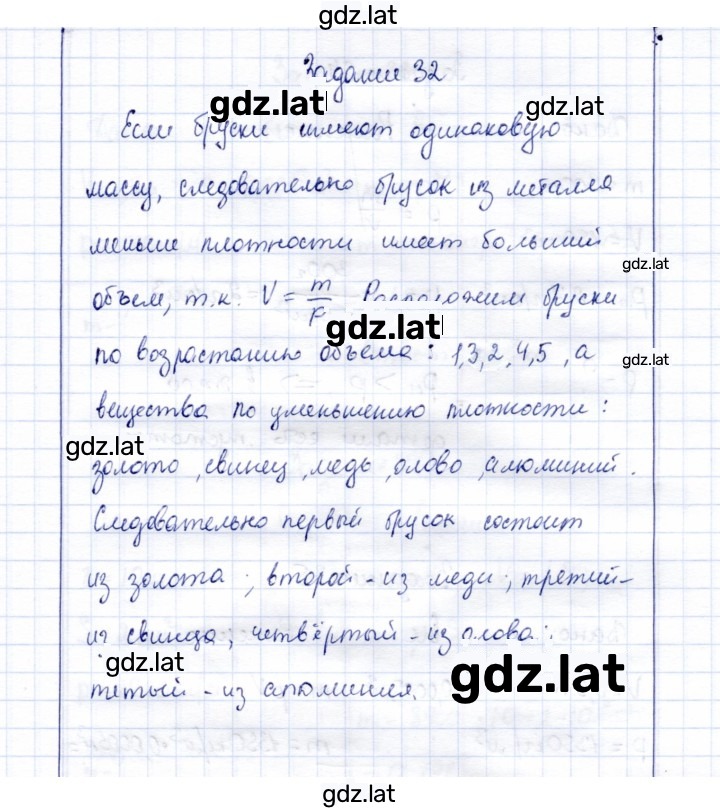 gdz.lat
Задание 32
gdz.lat gdz.lat
Если бруски имеют одинаковую
массу, следовательно брусок из металла
меньше плотности имеет больший
gdz.lat
объем, т.к. V = m/ρ Расположим бруски
gdz.lat
по возрастанию объема: 1,3,2,4,5, а
gdz.lat
вещества по уменьшению плотности:
gdz.lat
золото, свинец, медь, олово, алюминий.
Следовательно первый брусок состоит
из золота; второй - из меди; третий-
из свинца; четвёртый - из олова;
gdz.lat gdz.lat
тетый - из алюминия.
gdz.lat